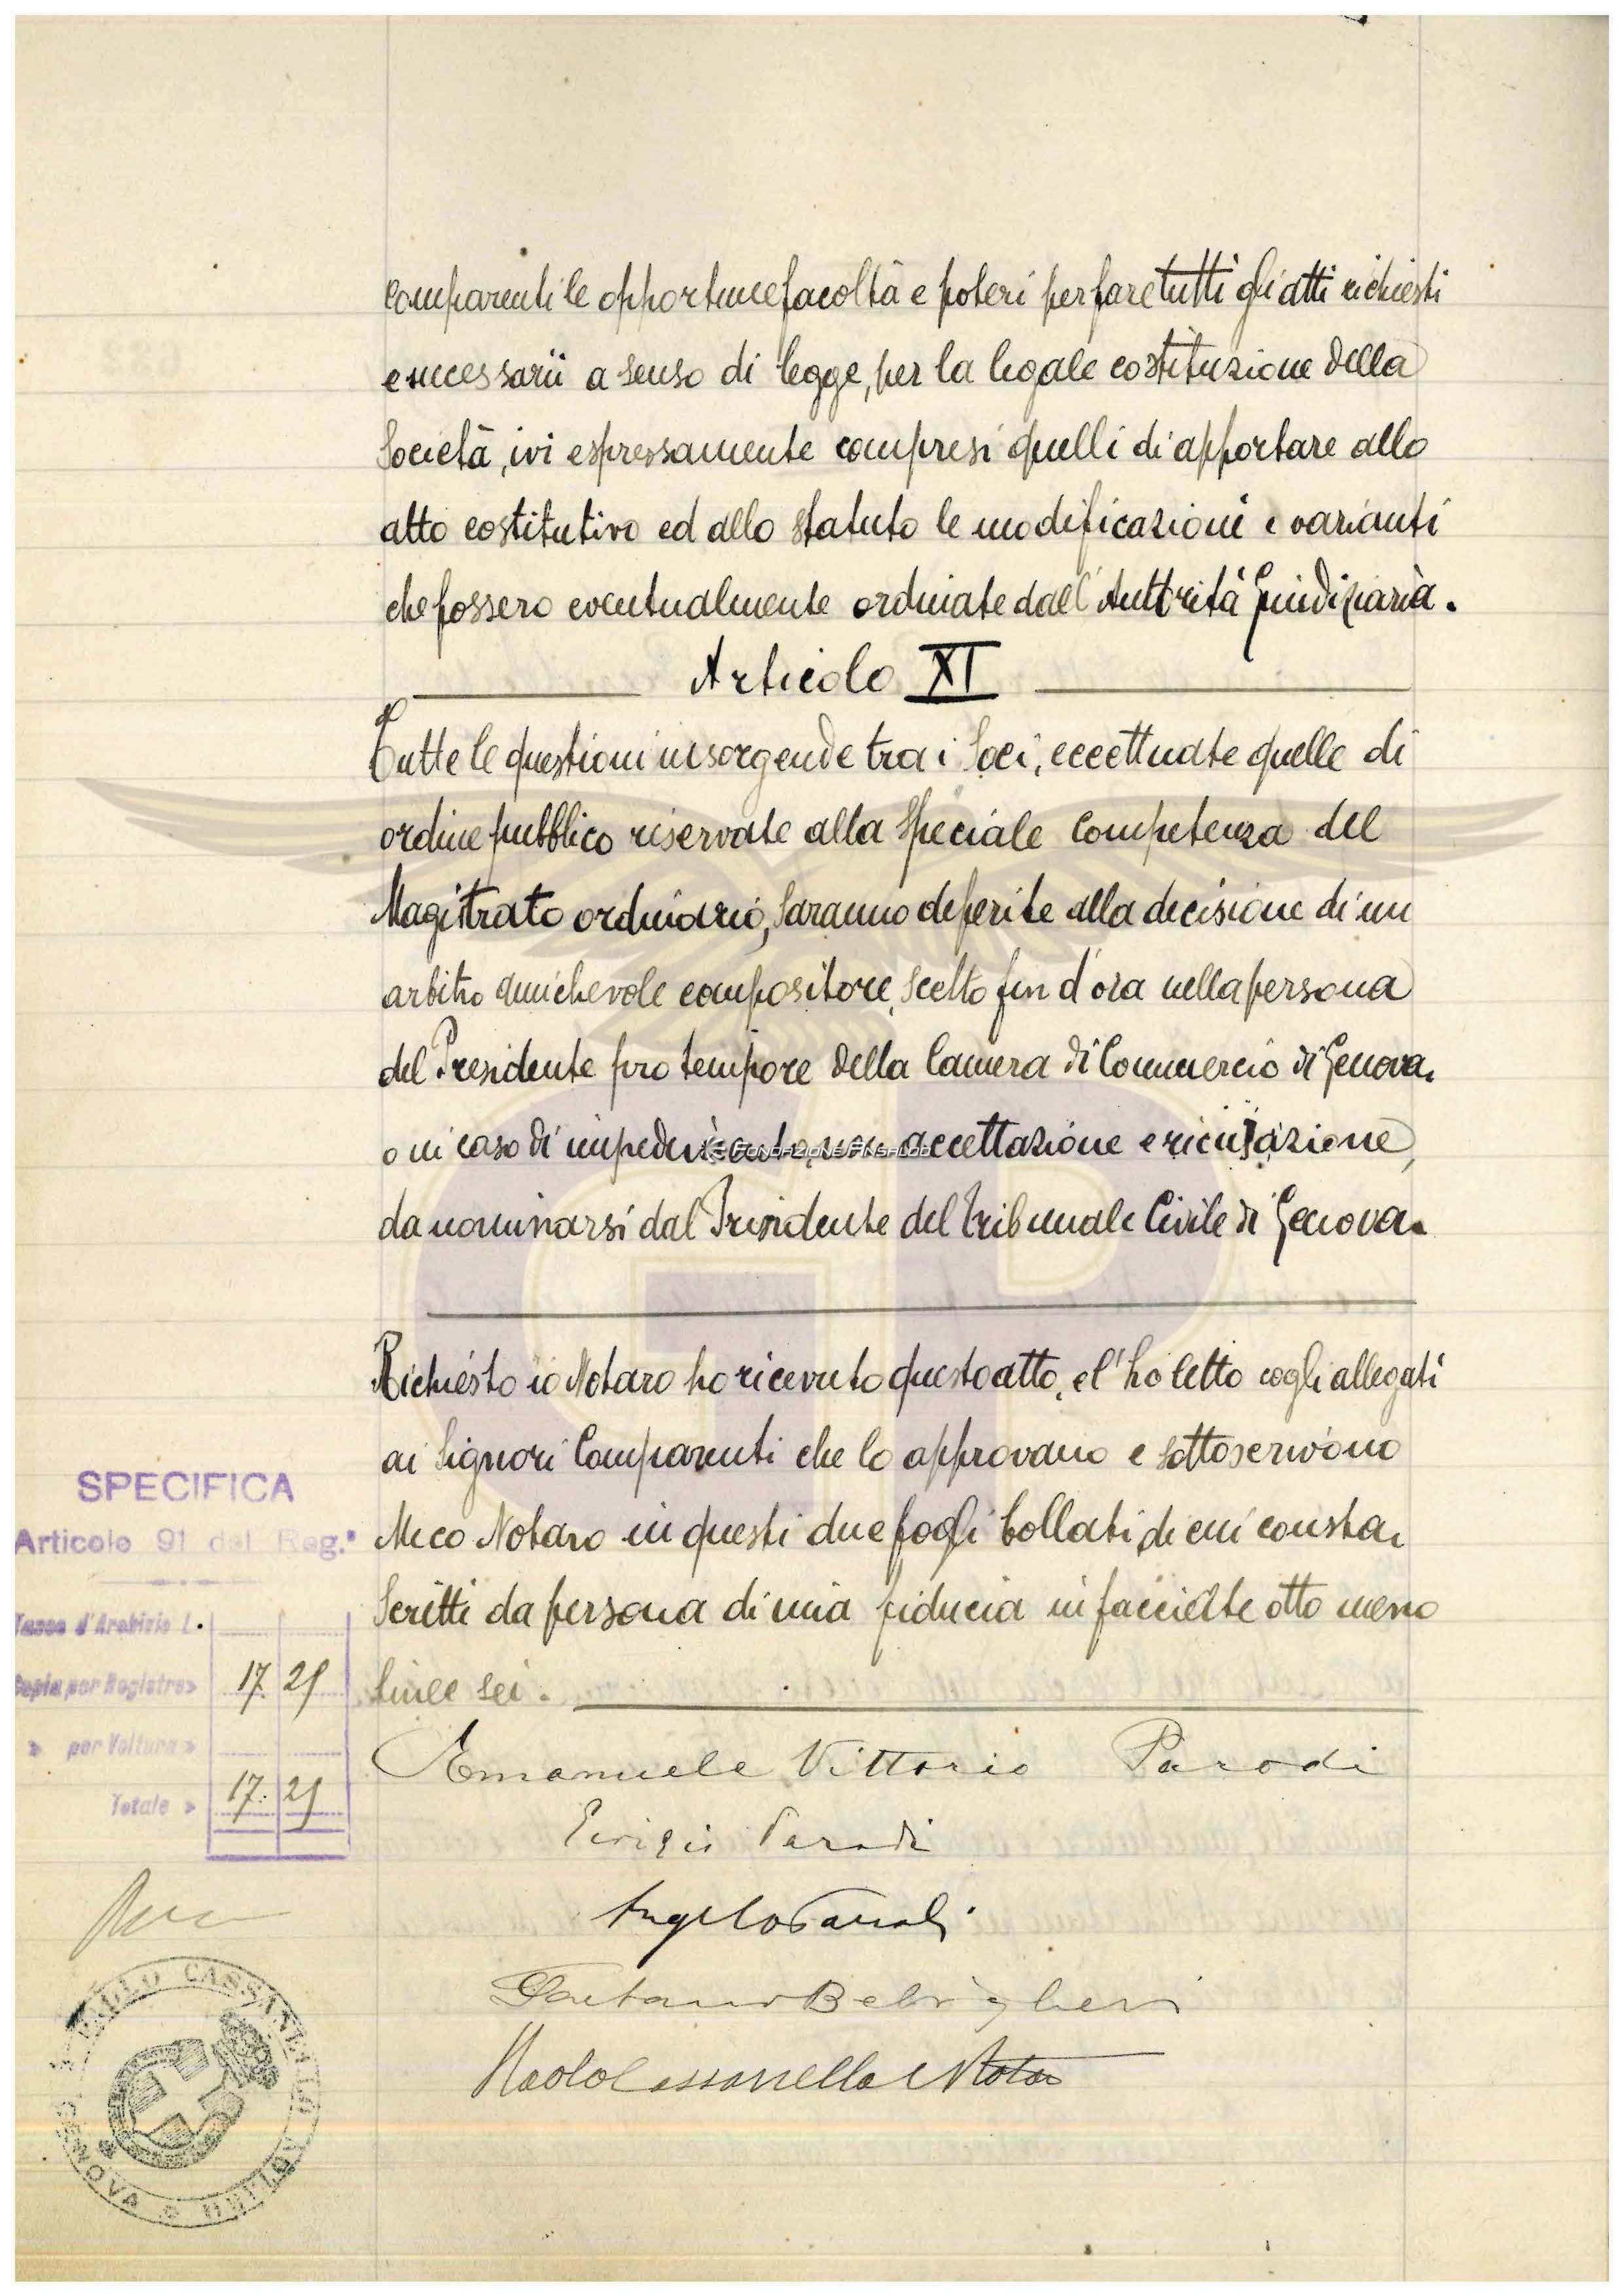 comparenti le opportune facoltà e poteri per fare tutti gli atti richiesti
e necessarii a senso di legge, per la legale costituzione della
Società, ivi espressamente compresi quelli di apportare allo
atto costitutivo ed allo statuto le modificazioni e varianti
che fossero eventualmente ordinate dall'Autorità Giudiziaria.
Articolo XI
Tutte le questioni insorgende tra i Soci, eccettuate quelle di
ordine pubblico riservate alla speciale competenza del
Magistrato ordinario, saranno deferite alla decisione di un
arbitro amichevole compositore, scelto fin d'ora nella persona
del Presidente pro tempore della Camera di Commercio di Genova,
o in caso di impedimento, non accettazione e ricusazione,
FONDAZIONE ANSALDO
da nominarsi dal Presidente del Tribunale Civile di Genova.
Richiesto io Notaro ho ricevuto questo atto, e l'ho letto cogli allegati
ai Signori Comparenti che lo approvano e sottoscrivono
Meco Notaro in questi due fogli bollati di cui consta,
Scritti da persona di mia fiducia in facciate otto meno
linee sei.
SPECIFICA
Articolo 91 del Reg.°
Tassa d'Archivio L.
Copia per Registro » 17 25
» per Voltura »
Totale » 17. 25
Emanuele Vittorio Parodi
Parodi
Angelo Parodi
Gaetano Belvigheri
Paolo Cassanello Notaro
PAOLO CASSANELLO
GENOVA
GP